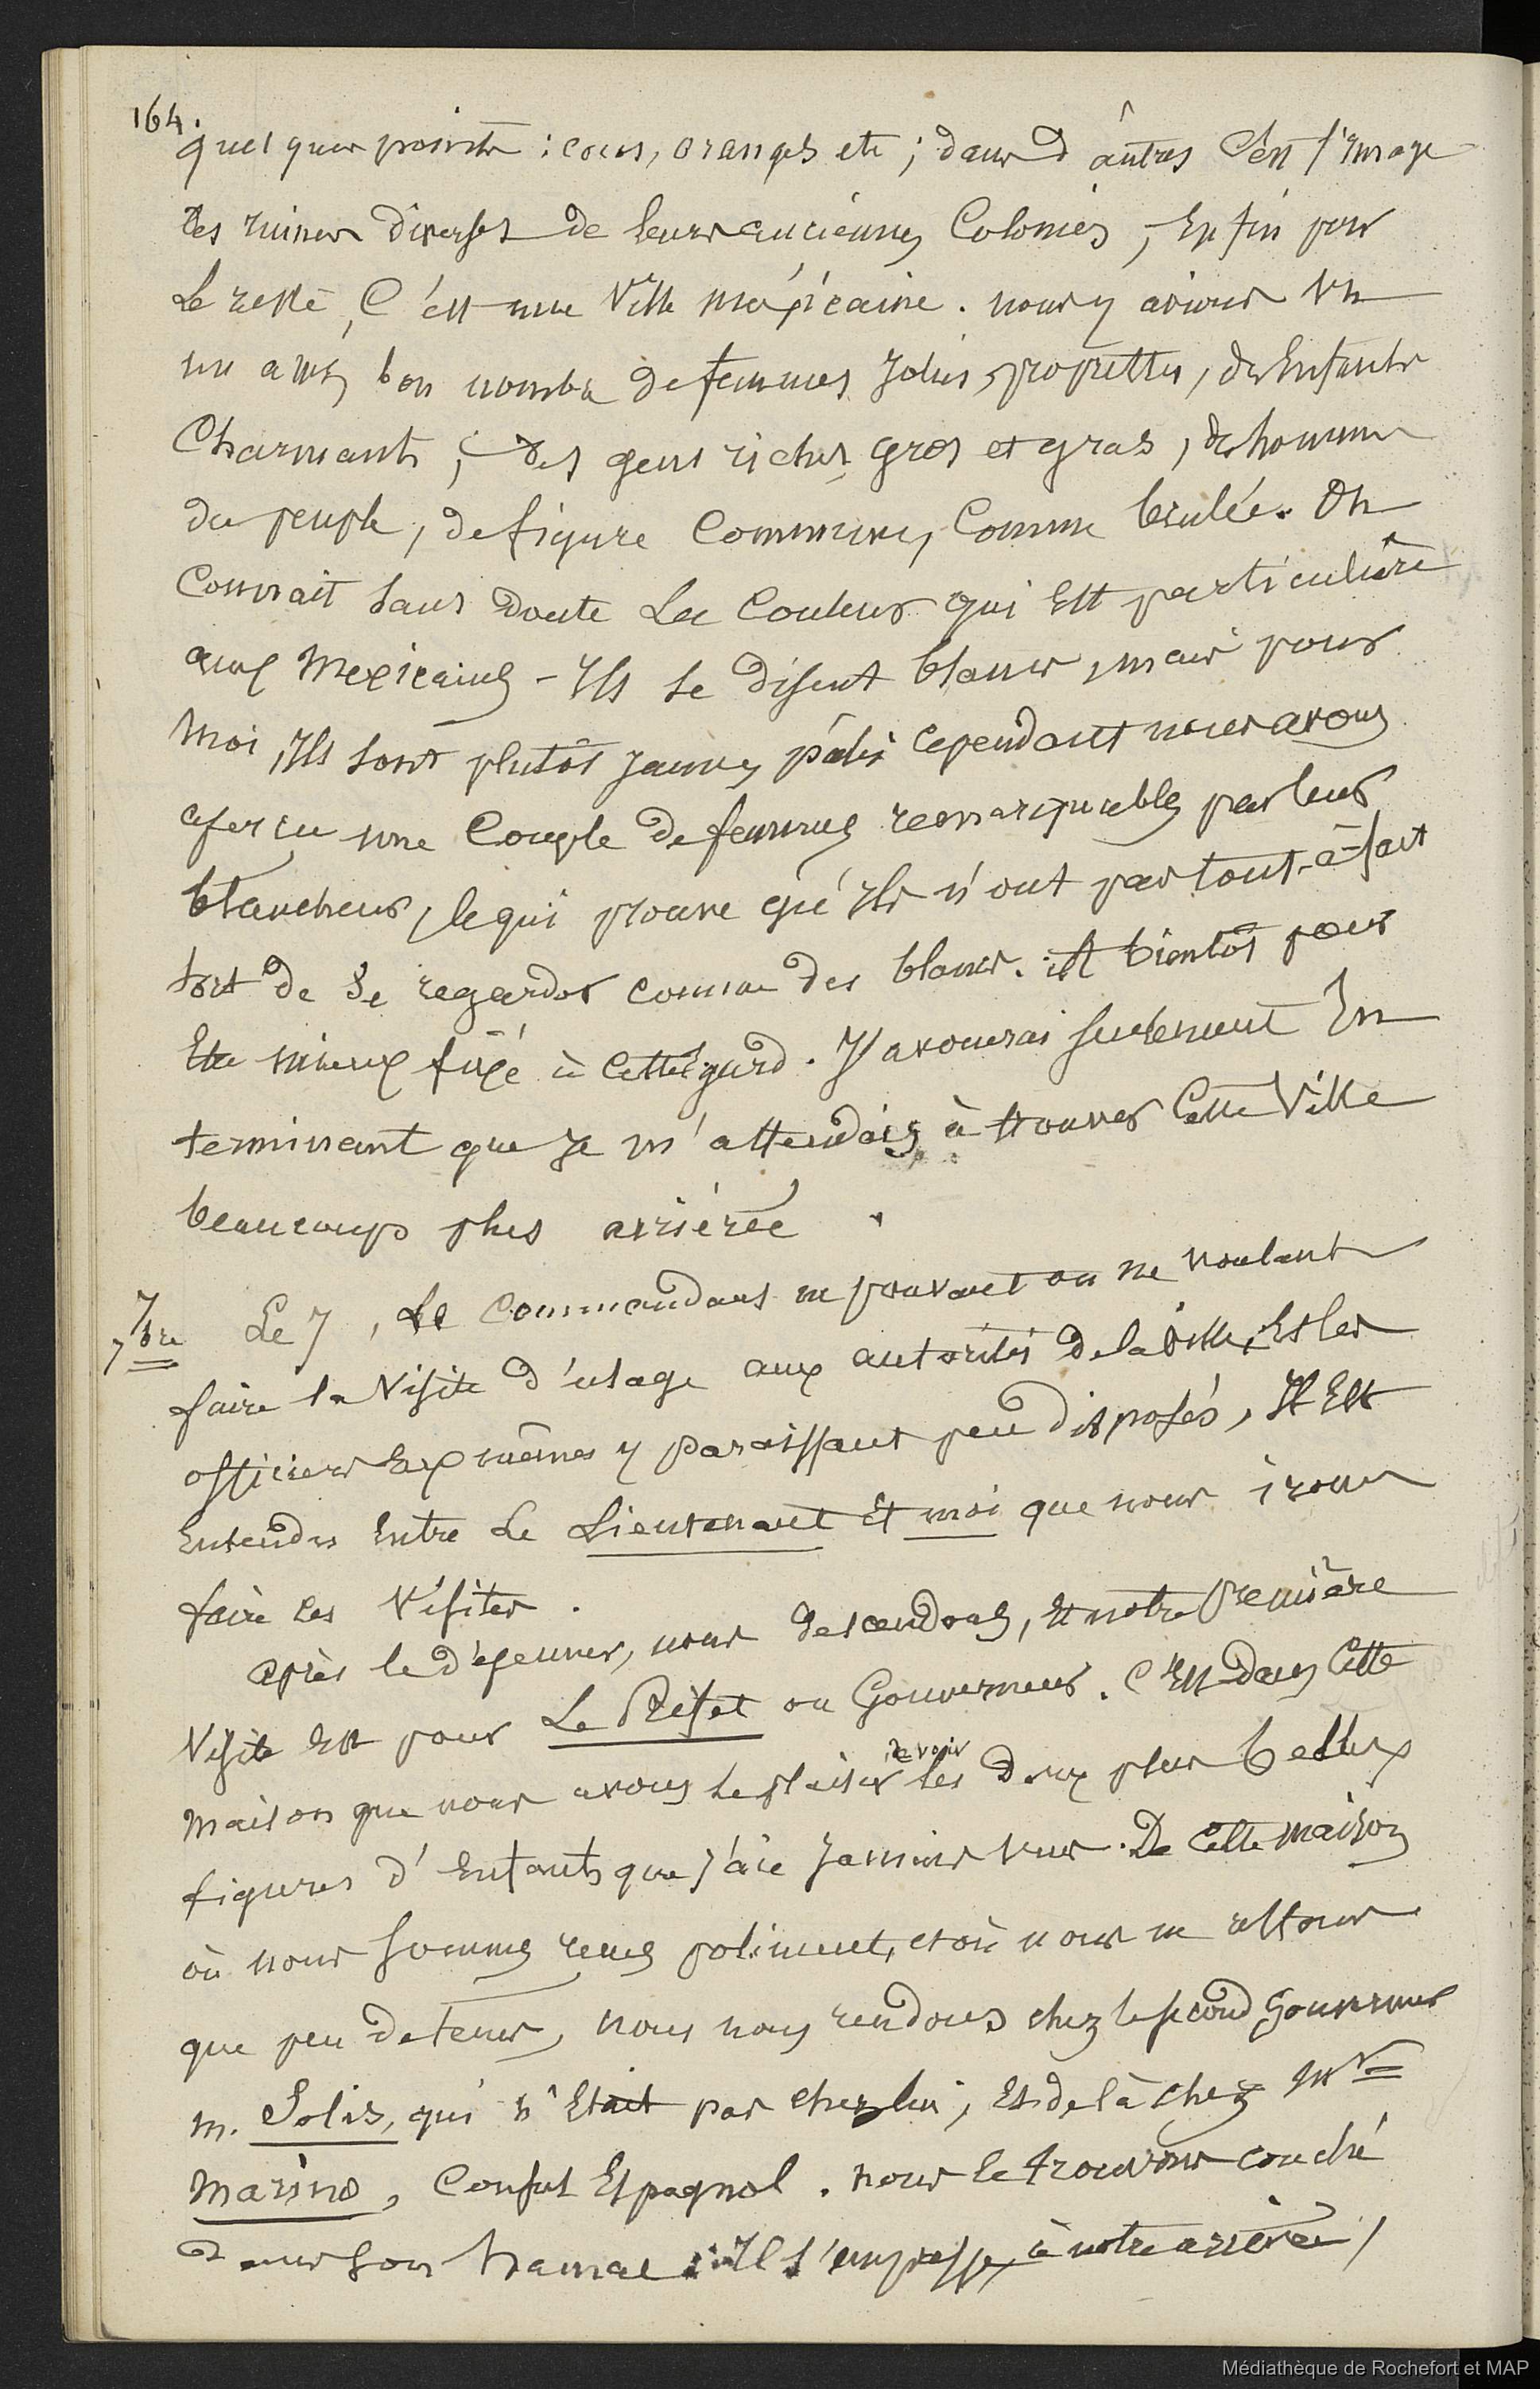 164.
quelques points : cocos, oranges etc ; dans d'autres C'est l'image
des ruines diverses de leurs anciennes Colonies ; Enfin pour
Le reste, C'est une Ville mexicaine. nous y avions vu
un assez bon nombre de femmes Jolies, proprettes, des Enfants
Charmants ; des gens riches gros et gras, des hommes
du peuple, de figure Commune, Comme brulée. On
Connait sans doute La Couleur qui Est particulière
aux Mexicains - Ils se disent blancs, mais pour
Moi, Ils sont plutôt Jaunes, pâles cependant nous avons
aperçu une Couple de femmes remarquables par leur
blancheur, ce qui prouve qu'Ils n'ont pas tout-à-fait
tort de se regarder comme des blancs. A bientôt pour
Etre mieux fixé à Cette Egard. J'avouerai seulement En
terminant que Je m'attendais à trouver Cette Ville
beaucoup plus arriérée.
7
7bre Le 7, Le Commandant ne pouvant ou ne voulant
faire la Visite d'usage aux autorités de la Ville, Et les
officiers Eux mêmes y paraissant peu disposés, Il Est
Entendu Entre Le Lieutenant Et moi que nous irons
faire les Visites.
après le déjeuner, nous descendons, Et notre Première
Visite Est pour Le Préfet ou Gouverneur. C'Est dans Cette
Maison que nous avons le plaisir de voir les deux plus belles
figures d'Enfants que J'aie Jamais vus. De Cette maison
où nous sommes reçus poliment, et où nous ne restons
que peu de tems, nous nous rendons chez le second Gouverneur
m. Solis, qui n'Etait pas chez lui, Et de là chez Mr
Marino, Consul Espagnol. nous le trouvons couché
dans son hamac : Il s'empresse, à notre arrivée,
Médiathèque de Rochefort et MAP